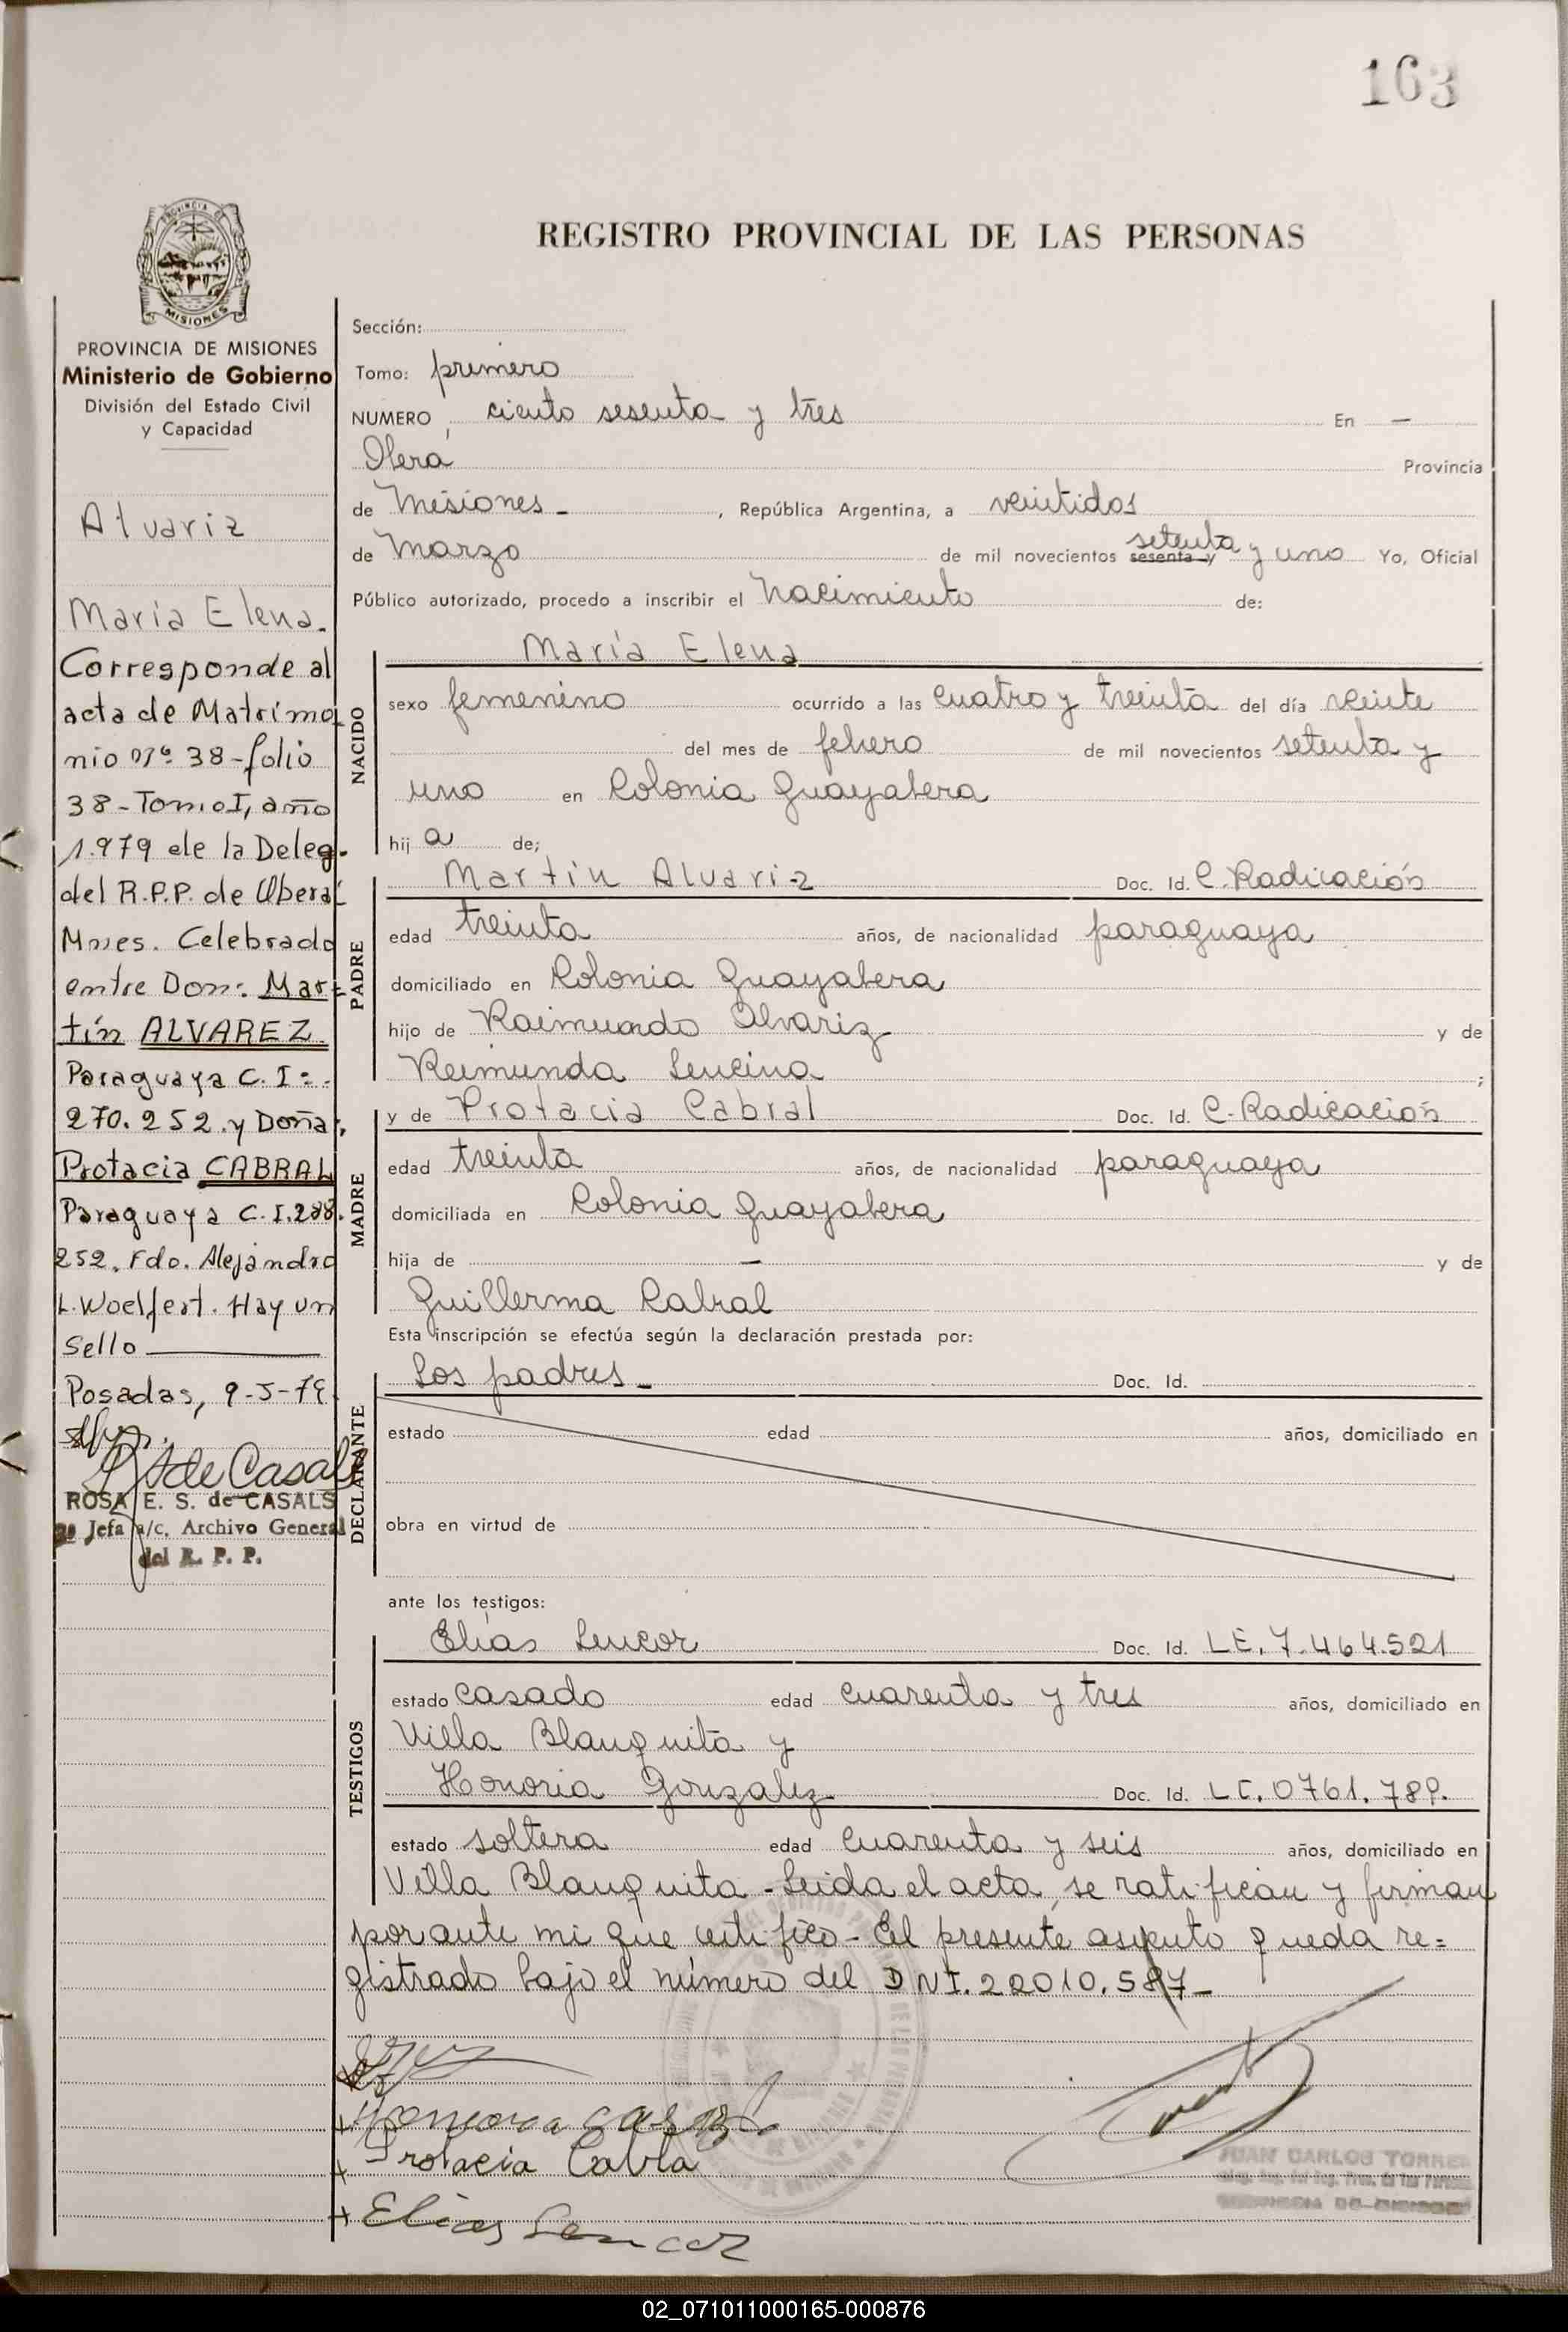 163
REGISTRO PROVINCIAL DE LAS PERSONAS
PROVINCIA DE
MISIONES
PROVINCIA DE MISIONES
Ministerio de Gobierno
División del Estado Civil
y Capacidad
Alvariz
María Elena.
Corresponde al
acta de Matrimo
nio nº 38-folio
38-Tomo I, año
1.979 de la Deleg.
del R.P.P. de Oberá
Mnes. Celebrado
entre Don: Mar=
tín ALVAREZ
Paraguaya C.I:
270.252 y Doña,
Protacia CABRAL
Paraguaya C.I.288.
252. Fdo. Alejandro
L. Woelfert. Hay un
Sello
Posadas, 9-5-79.
ROSA E. S. de CASALS
Jefa a/c. Archivo General
del R. P. P.
Sección:
Tomo: primero
NUMERO, ciento sesenta y tres En —
Obera Provincia
de Misiones - , República Argentina, a veintidos
de Marzo de mil novecientos sesenta y setenta y uno Yo, Oficial
Público autorizado, procedo a inscribir el Nacimiento de:
María Elena
NACIDO
sexo femenino ocurrido a las cuatro y treinta del día veinte
del mes de febrero de mil novecientos setenta y
uno en Colonia Guayabera
hij a de;
Martín Alvariz Doc. Id. C. Radicación
PADRE
edad treinta años, de nacionalidad paraguaya
domiciliado en Colonia Guayabera
hijo de Raimundo Alvariz y de
Reimunda Lencina ;
y de Protacia Cabral Doc. Id. C. Radicación
MADRE
edad treinta años, de nacionalidad paraguaya
domiciliada en Colonia Guayabera
hija de — y de
Guillerma Cabral
Esta inscripción se efectúa según la declaración prestada por:
Los padres - Doc. Id.
DECLARANTE
estado edad años, domiciliado en
obra en virtud de
ante los testigos:
Elías Lencor Doc. Id. LE. 7.464.521
TESTIGOS
estado casado edad cuarenta y tres años, domiciliado en
Villa Blanquita y
Honoria Gonzalez Doc. Id. LC. 0761.789.
estado soltera edad cuarenta y seis años, domiciliado en
Villa Blanquita - Leida el acta, se ratifican y firman
por ante mi que certifico - El presente asiento queda re=
gistrado bajo el número del DNI. 22010.587-
Protacia Cabra
Elías Lencor
JUAN CARLOS TORRES
02_071011000165-000876